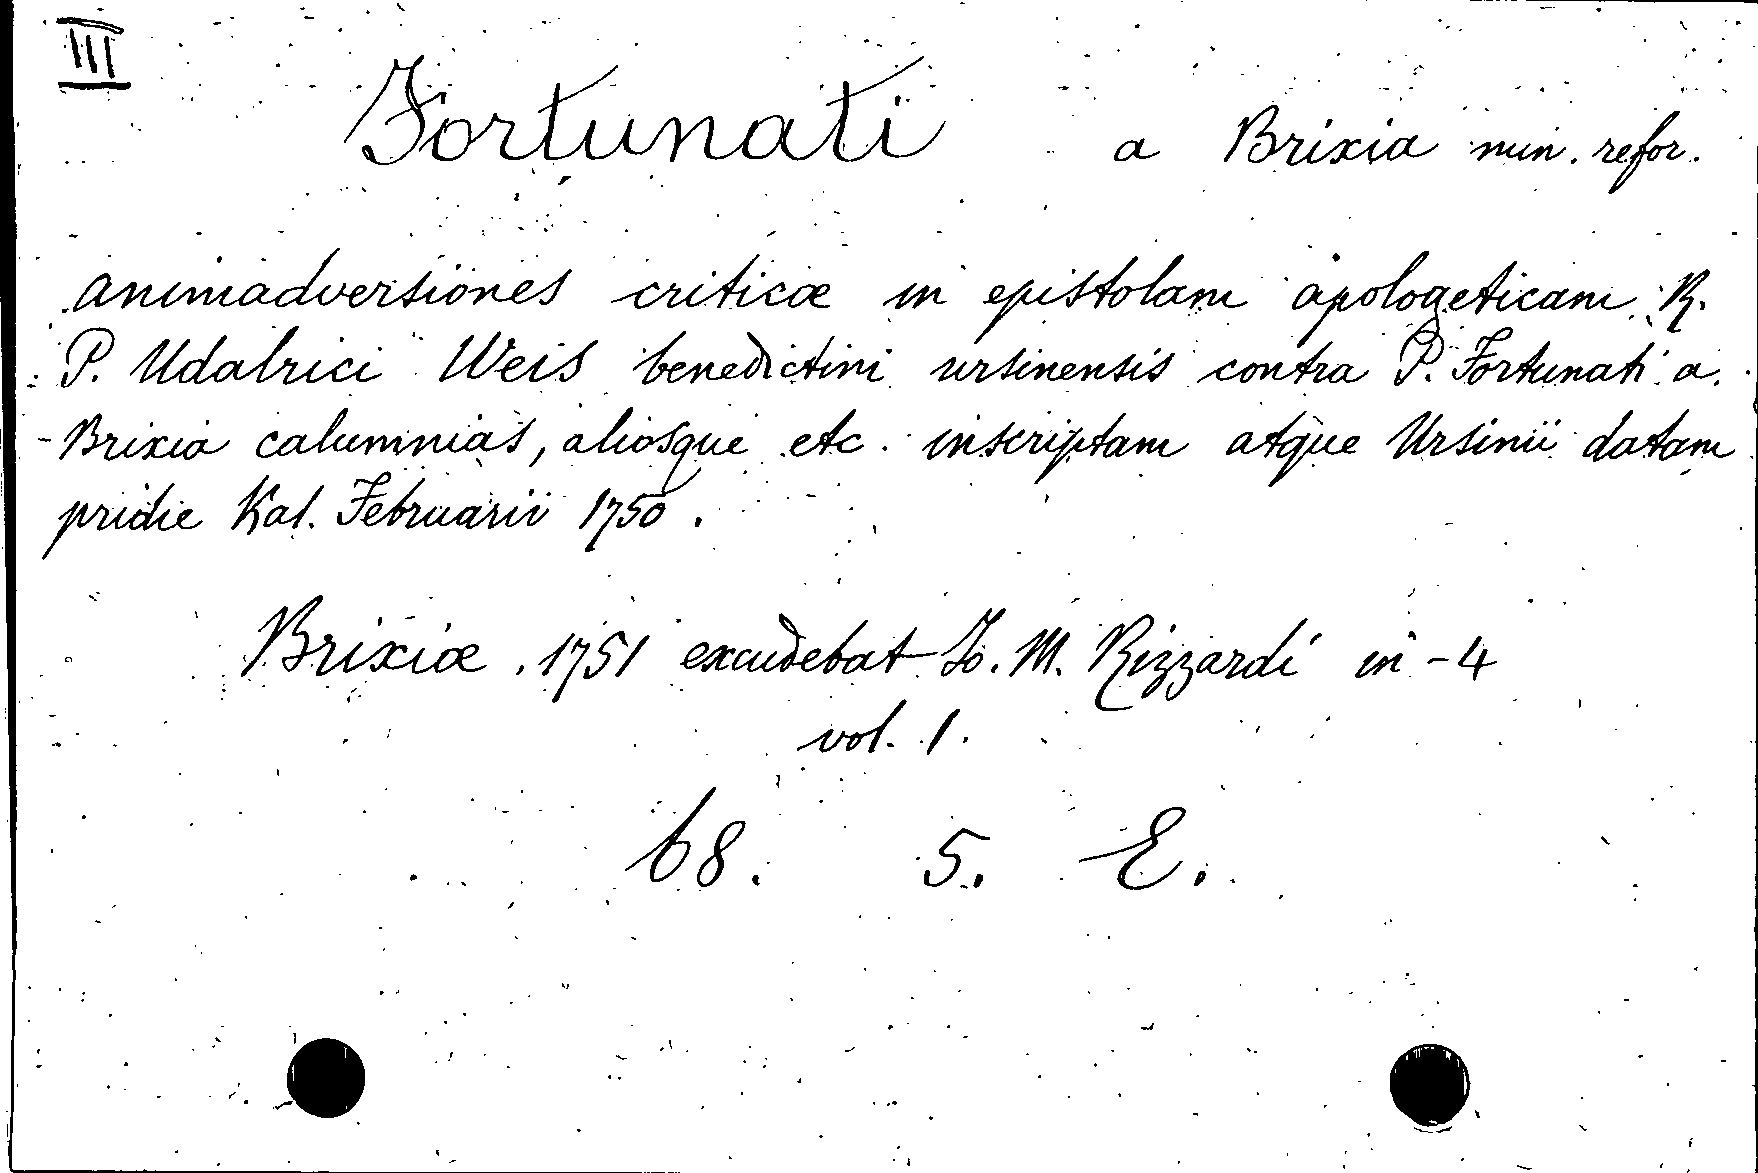 III
Fortunati a Brixia min. refor.
animadversiones criticæ in epistolam apologeticam R.
P. Udalrici Weis benedictini ursinensis contra P. Fortunati a
Brixia calumnias, aliosque etc. inscriptam atque Ursinii datam
pridie Kal. Februarii 1750.
Brixiæ 1751 excudebat Jo. M. Rizzardi in-4
vol. 1.
68. 5. E.